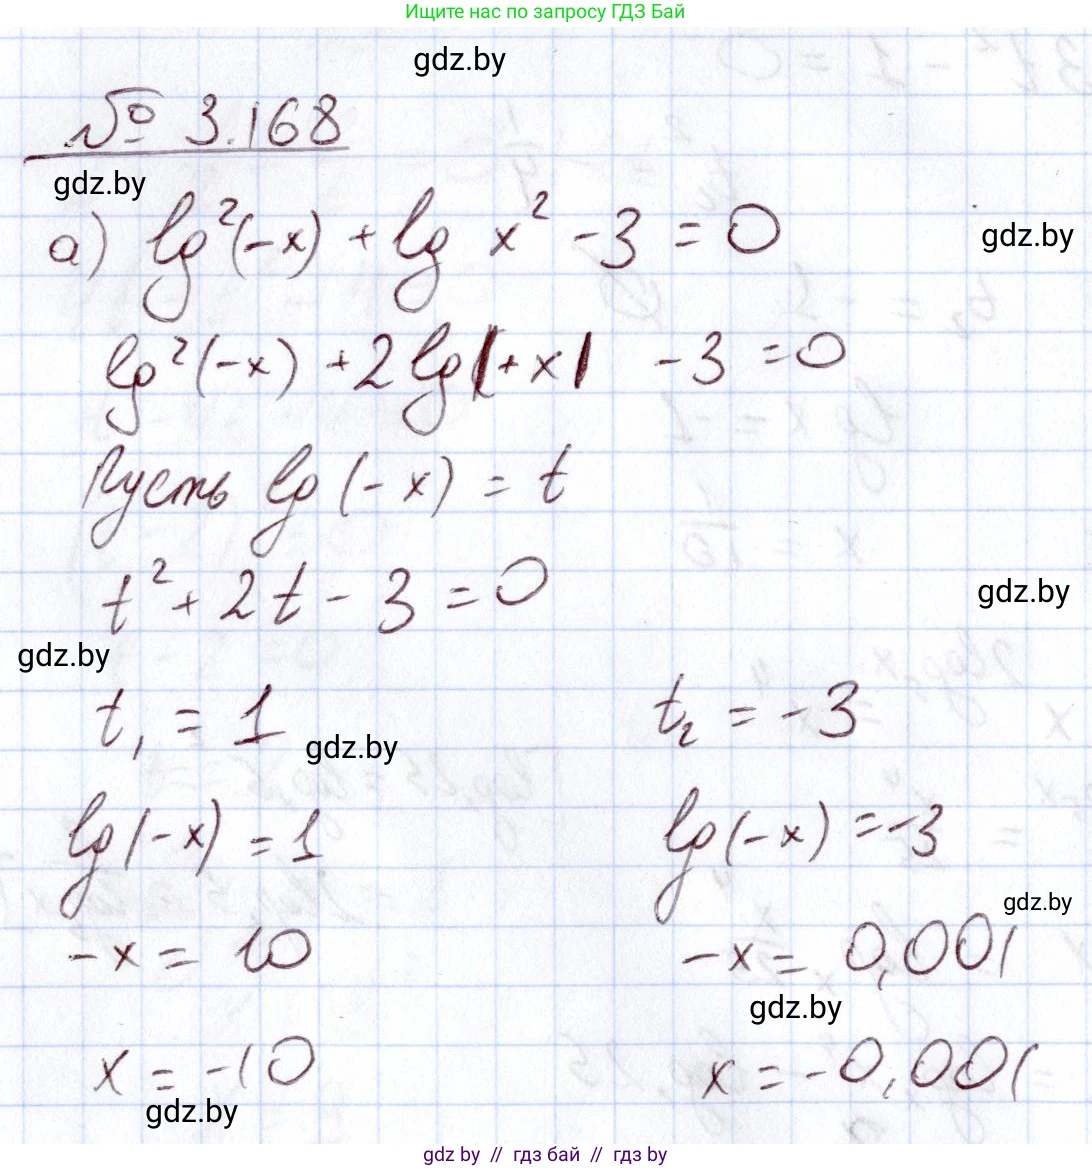 Ищите нас по запросу ГДЗ Бай
gdz.by
№ 3.168
gdz.by
а) lg²(-x) + lg x² - 3 = 0
gdz.by
lg²(-x) + 2 lg|+x| - 3 = 0
Пусть lg (-x) = t
t² + 2t - 3 = 0
gdz.by
gdz.by
t₁ = 1 t₂ = -3
gdz.by
lg(-x) = 1 lg(-x) = -3
gdz.by
-x = 10 -x = 0,001
gdz.by
x = -10 x = -0,001
gdz.by
gdz.by // гдз бай // гдз by